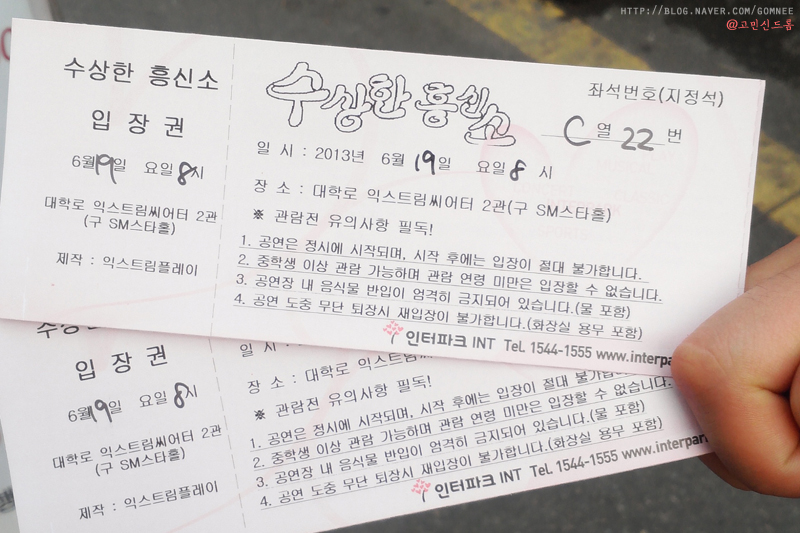 HTTP://BLOG.NAVER.COM/GOMNEE
@고민신드롬
수상한 흥신소
입 장 권
6월 19일 요일 8시
대학로 익스트림씨어터 2관
(구 SM스타홀)
제작 : 익스트림플레이
수상한 흥신소
좌석번호(지정석)
C 열 22 번
일 시 : 2013년 6월 19일 요일 8 시
장 소 : 대학로 익스트림씨어터 2관(구 SM스타홀)
※ 관람전 유의사항 필독!
1. 공연은 정시에 시작되며, 시작 후에는 입장이 절대 불가합니다.
2. 중학생 이상 관람 가능하며 관람 연령 미만은 입장할 수 없습니다.
3. 공연장 내 음식물 반입이 엄격히 금지되어 있습니다.(물 포함)
4. 공연 도중 무단 퇴장시 재입장이 불가합니다.(화장실 용무 포함)
인터파크 INT Tel. 1544-1555 www.interp
수상한
입 장 권
6월 19일 요일 8시
대학로 익스트림씨어터 2관
(구 SM스타홀)
제작 : 익스트림플레이
일 시 :
장 소 : 대학로 익스트림씨어터
※ 관람전 유의사항 필독!
1. 공연은 정시에 시작되며, 시작 후에는 입장이 절대 불가합
2. 중학생 이상 관람 가능하며 관람 연령 미만은 입장할 수 없습니다.
3. 공연장 내 음식물 반입이 엄격히 금지되어 있습니다.(물 포함)
4. 공연 도중 무단 퇴장시 재입장이 불가합니다.(화장실 용무 포함)
인터파크 INT Tel. 1544-1555 www.interpar